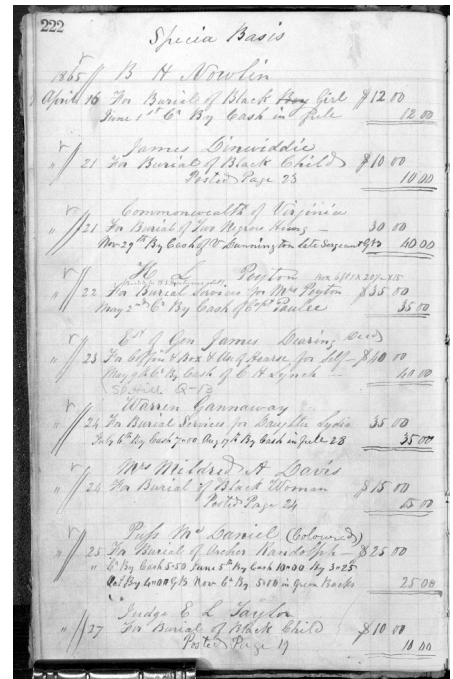 222
Specia Basis
1865 B H Nowlin
April 16 For Burial of Black Boy Girl $12 00
June 1st Cr By Cash in full 12 00
James Dinwiddie
" 21 For Burial of Black Child $10 00
Posted Page 23 10 00
Commonwealth of Virginia
" 21 For Burial of Two Negroes Hung 30 00
Nov 29th By Cash of V Dunnington late Sergeant GB 40 00
H L Peyton
" 22 For Burial Services for Mrs Peyton $35 00
May 2nd Cr By Cash of Capt Paulee 35 00
Est of Gen James Dearing Decd
" 23 For Coffin & Box & Us of Hearse for Self $40 00
May Cr By Cash of C H Lynch 40 00
Sp. Hill Q-13
Warren Gannaway
" 24 For Burial Services for Daughter Lydia 35 00
July 6th By Cash 7.00 Aug By Cash in full 28 35 00
Mrs Mildred A Davis
" 24 For Burial of Black Woman $15 00
Posted Page 24 15 00
Puss McDaniel (Coloured)
" 25 For Burial of Archer Randolph $25 00
" Cr By Cash 5.50 June 5th By Cash 10.00 By 3.25
Oct By 4.00 GB Nov Cr By 5.00 in Green Backs 25 00
Judge E L Taylor
" 27 For Burial of Black Child $10 00
Posted Page 19 10 00